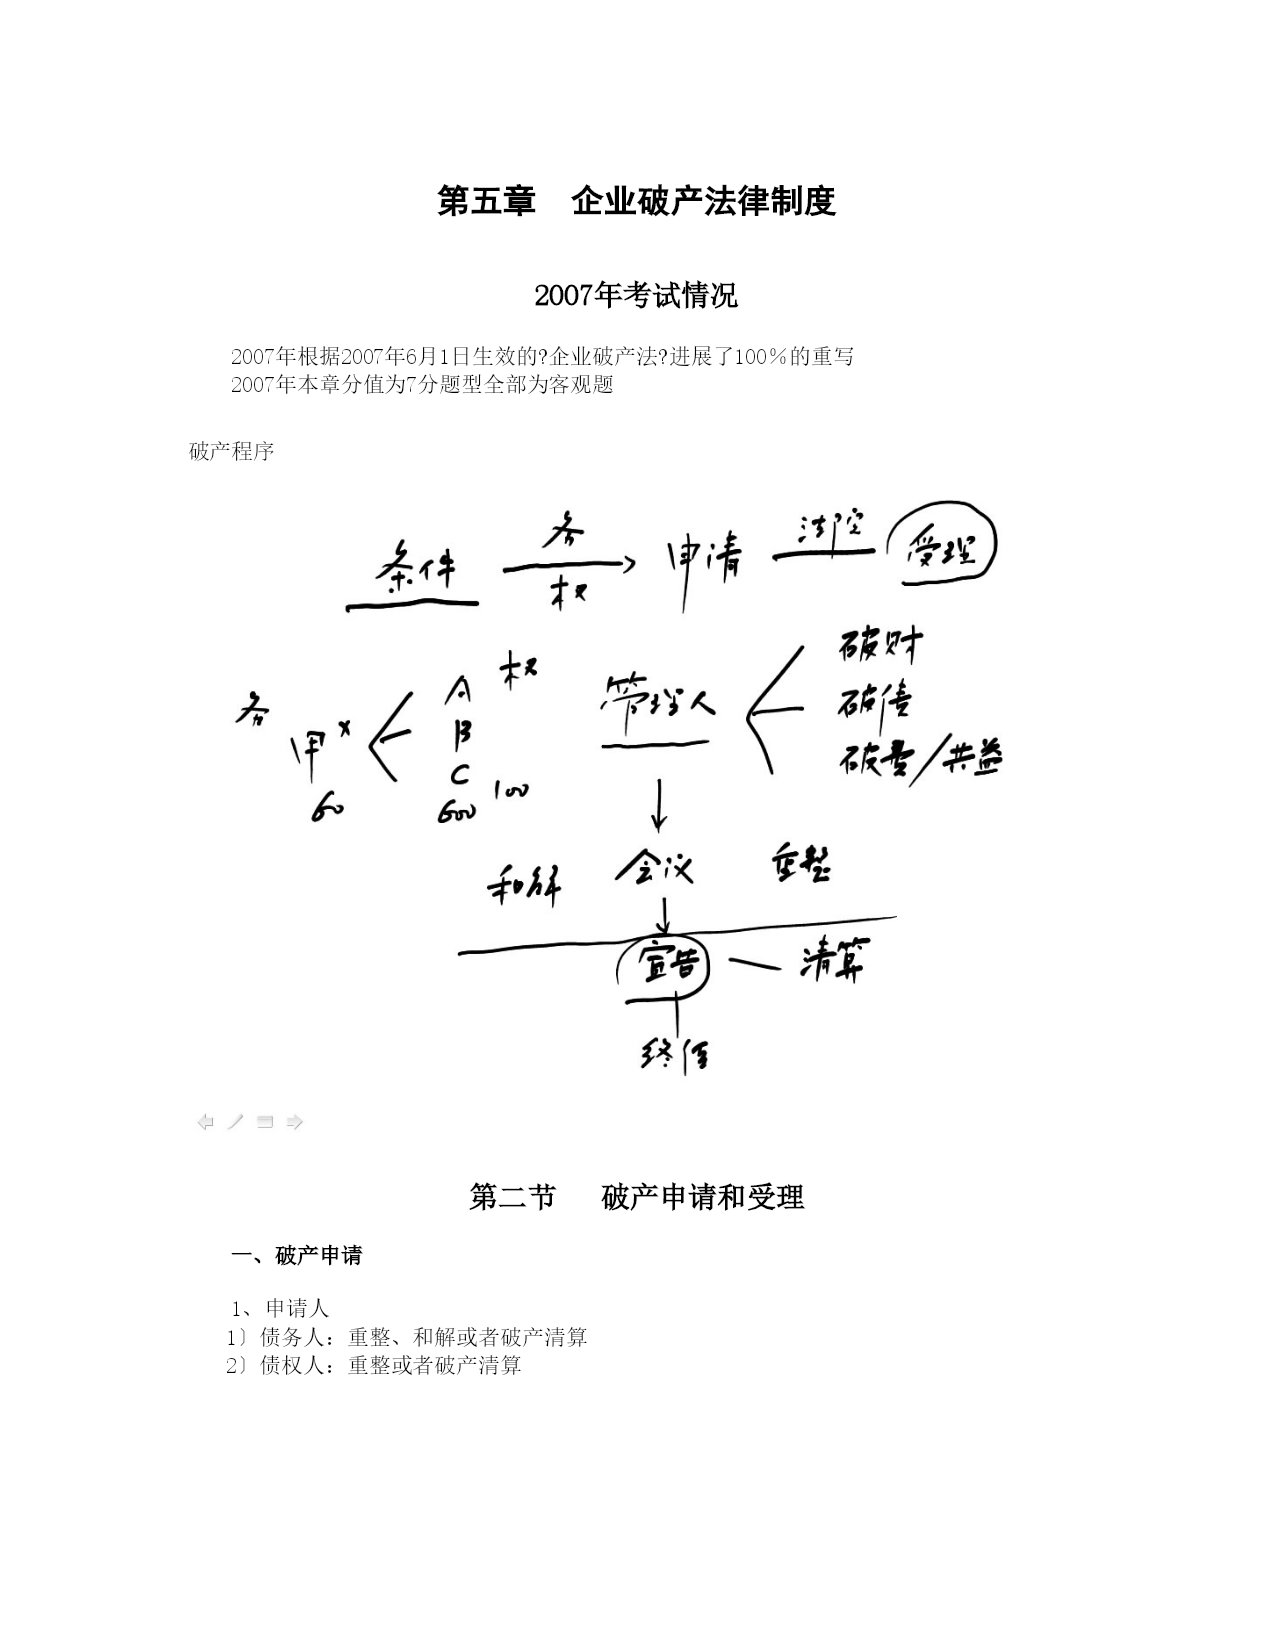 第五章 企业破产法律制度
2007年考试情况
2007年根据2007年6月1日生效的?企业破产法?进展了100％的重写
2007年本章分值为7分题型全部为客观题
破产程序
条件 务 权 申请 法院 受理
务 甲 x 60
A 权
B
C 100
600
管理人
破财
破债
破费/共益
和解 会议 重整
宣告 清算
终结
第二节 破产申请和受理
一、破产申请
1、申请人
1〕债务人：重整、和解或者破产清算
2〕债权人：重整或者破产清算